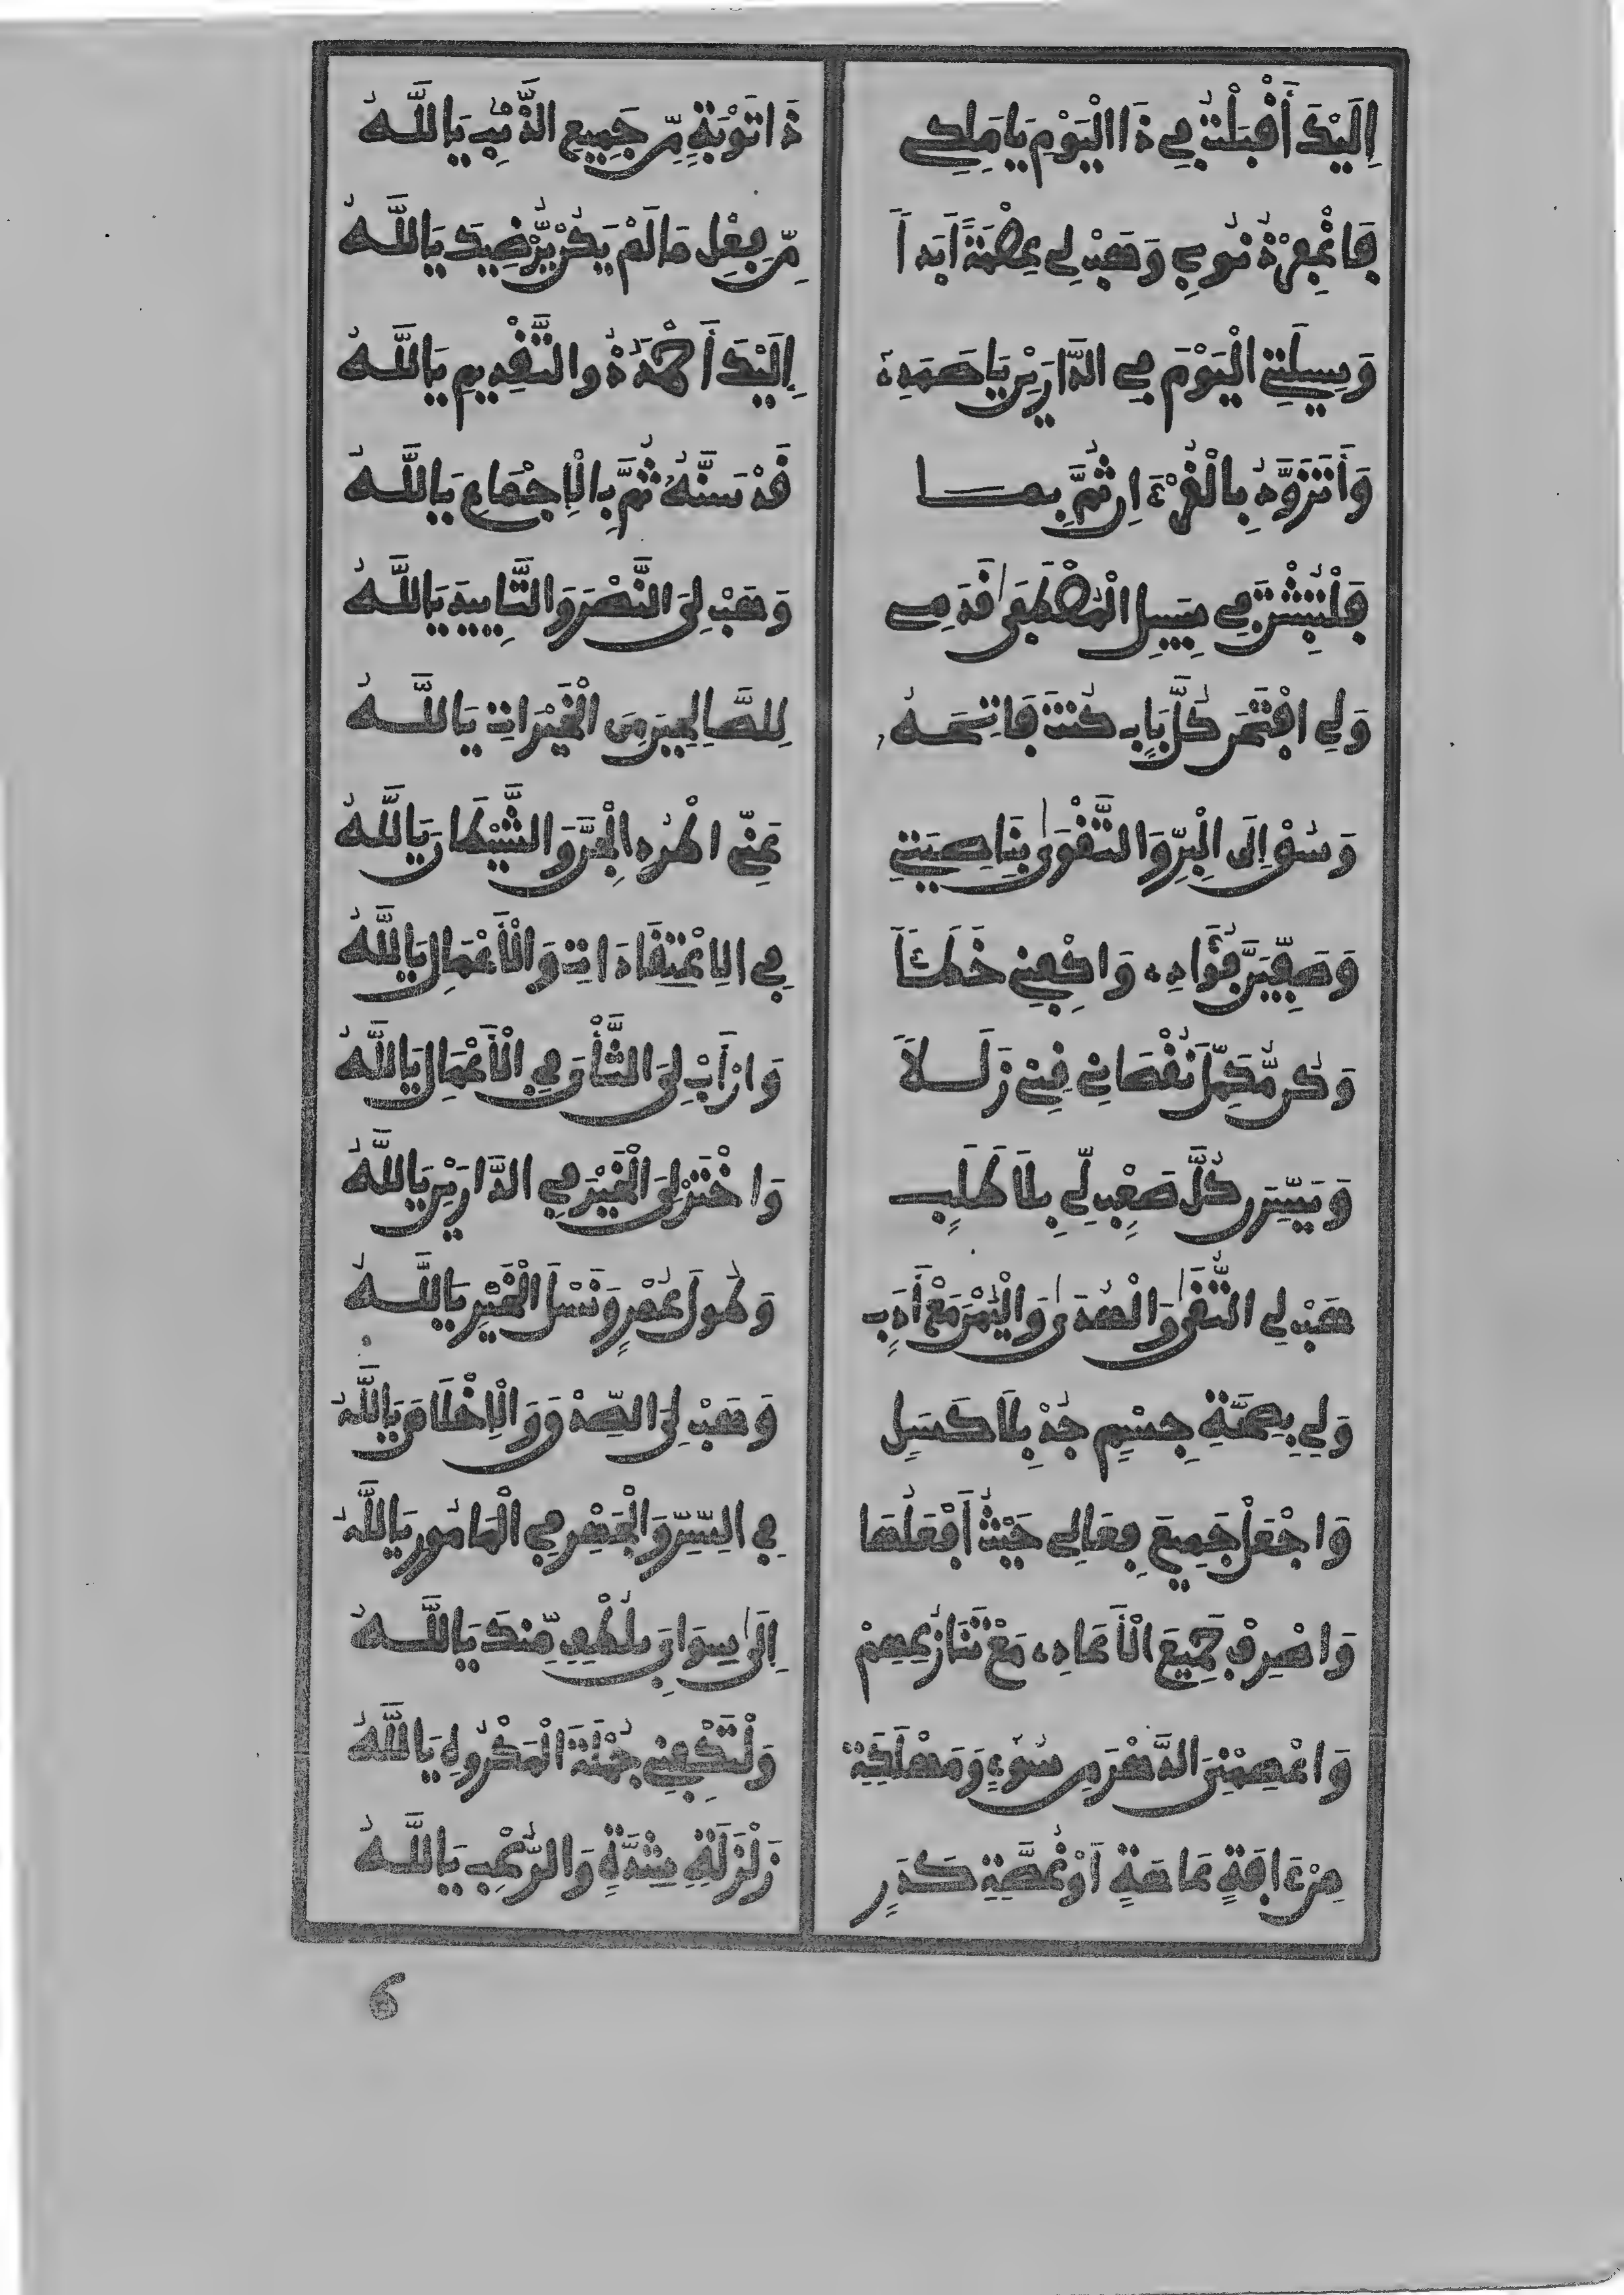 إِلَيْكَ أَقْبَلْتُ فِي ذَا الْيَوْمِ يَا مَلِكِي ذَا تَوْبَةٍ مِّن جَمِيعِ الذَّنْبِ يَا اللَّهُ
فَاغْفِرْ ذُنُوبِي وَهَبْ لِي عِصْمَةً أَبَداً مِّن فِعْلِ مَا لَمْ يَكُن يُّرْضِيكَ يَا اللَّهُ
وَسِيلَتِي الْيَوْمَ فِي الدَّارَيْنِ يَا صَمَدِي إِلَيْكَ أَحْمَدُ ذُو التَّقْدِيمِ يَا اللَّهُ
بِالْقُرْءَانِ ثُمَّ بِمَا قَدْ سَنَّهُ ثُمَّ بِالْإِجْمَاعِ يَا اللَّهُ
فَلْتُثْبِتَن فِي سَبِيلِ الْمُصْطَفَى قَدَمِي وَهَبْ لِيَ النَّصْرَ وَالتَّايِيدَ يَا اللَّهُ
وَلِي افْتَحَن كُلَّ بَابٍ كُنتَ فَاتِحَهُ لِلصَّالِحِينَ مِنَ الْخَيْرَاتِ يَا اللَّهُ
وَسُقْ إِلَى الْبِرِّ وَالتَّقْوَى بِنَاصِيَتِي عَنِّي اطْرُدِ الْجِنَّ وَالشَّيْطَانَ يَا اللَّهُ
وَصَفِّيَنَّ فُؤَادِي وَاكْفِنِي خَطَئاً فِي الِاعْتِقَادَاتِ وَالْأَعْمَالِ يَا اللَّهُ
وَكُن مُّكَمِّلَ نُقْصَانِي قِنِي زَلَلاً وَارْأَبْ لِيَ الثَّأْوَ فِي الْأَعْمَالِ يَا اللَّهُ
وَيَسِّرَن كُلَّ صَعْبٍ لِّي بِلَا طَلَبٍ وَاخْتَرْ لِيَ الْخَيْرَ فِي الدَّارَيْنِ يَا اللَّهُ
هَبْ لِي التُّقَى وَالْهُدَى وَالْيُمْنَ مَعْ أَدَبٍ وَطُولَ عُمْرٍ وَنَسْلَ الْخَيْرِ يَا اللَّهُ
وَلِي بِصِحَّةِ جِسْمٍ جُدْ بِلَا كَسَلٍ وَهَبْ لِيَ الصِّدْقَ وَالْإِخْلَاصَ يَا اللَّهُ
وَاجْعَلْ جَمِيعَ فِعَالِي حَيْثُ أَفْعَلُهَا فِي السِّرِّ وَالْجَهْرِ فِي الْمَامُورِ يَا اللَّهُ
وَاصْرِفْ جَمِيعَ الْأَعَادِي مَعْ تَنَازُعِهِمْ إِلَى سِوَايَ بِلُطْفٍ مِّنكَ يَا اللَّهُ
وَاعْصِمْنِيَ الدَّهْرَ مِن سُوءٍ وَمَهْلَكَةٍ وَلْتَكْفِنِي جُمْلَةَ الْمَكْرُوهِ يَا اللَّهُ
مِنْ ءَافَةٍ عَاهَةٍ أَوْ غُصَّةٍ كَدَرٍ زَلْزَلَةٍ شِدَّةٍ وَالرُّعْبِ يَا اللَّهُ
6